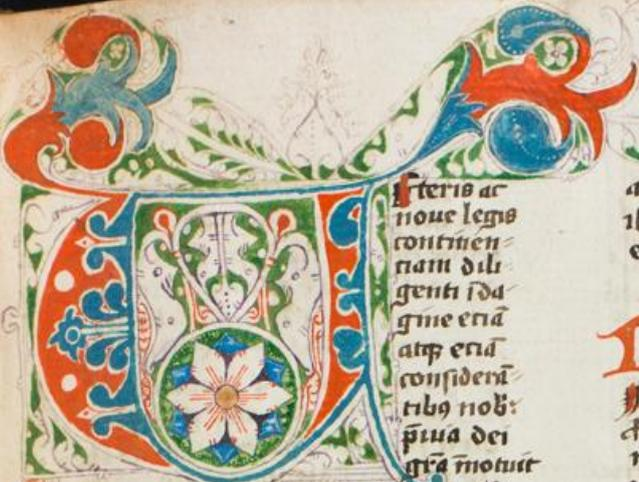 Veteris ac
noue legis
continen=
ciam dili
genti īda
gine eciā
atqꝫ eciā
considerā
tibꝰ nob̄:
p̄uia dei
gr̄a īnotuit